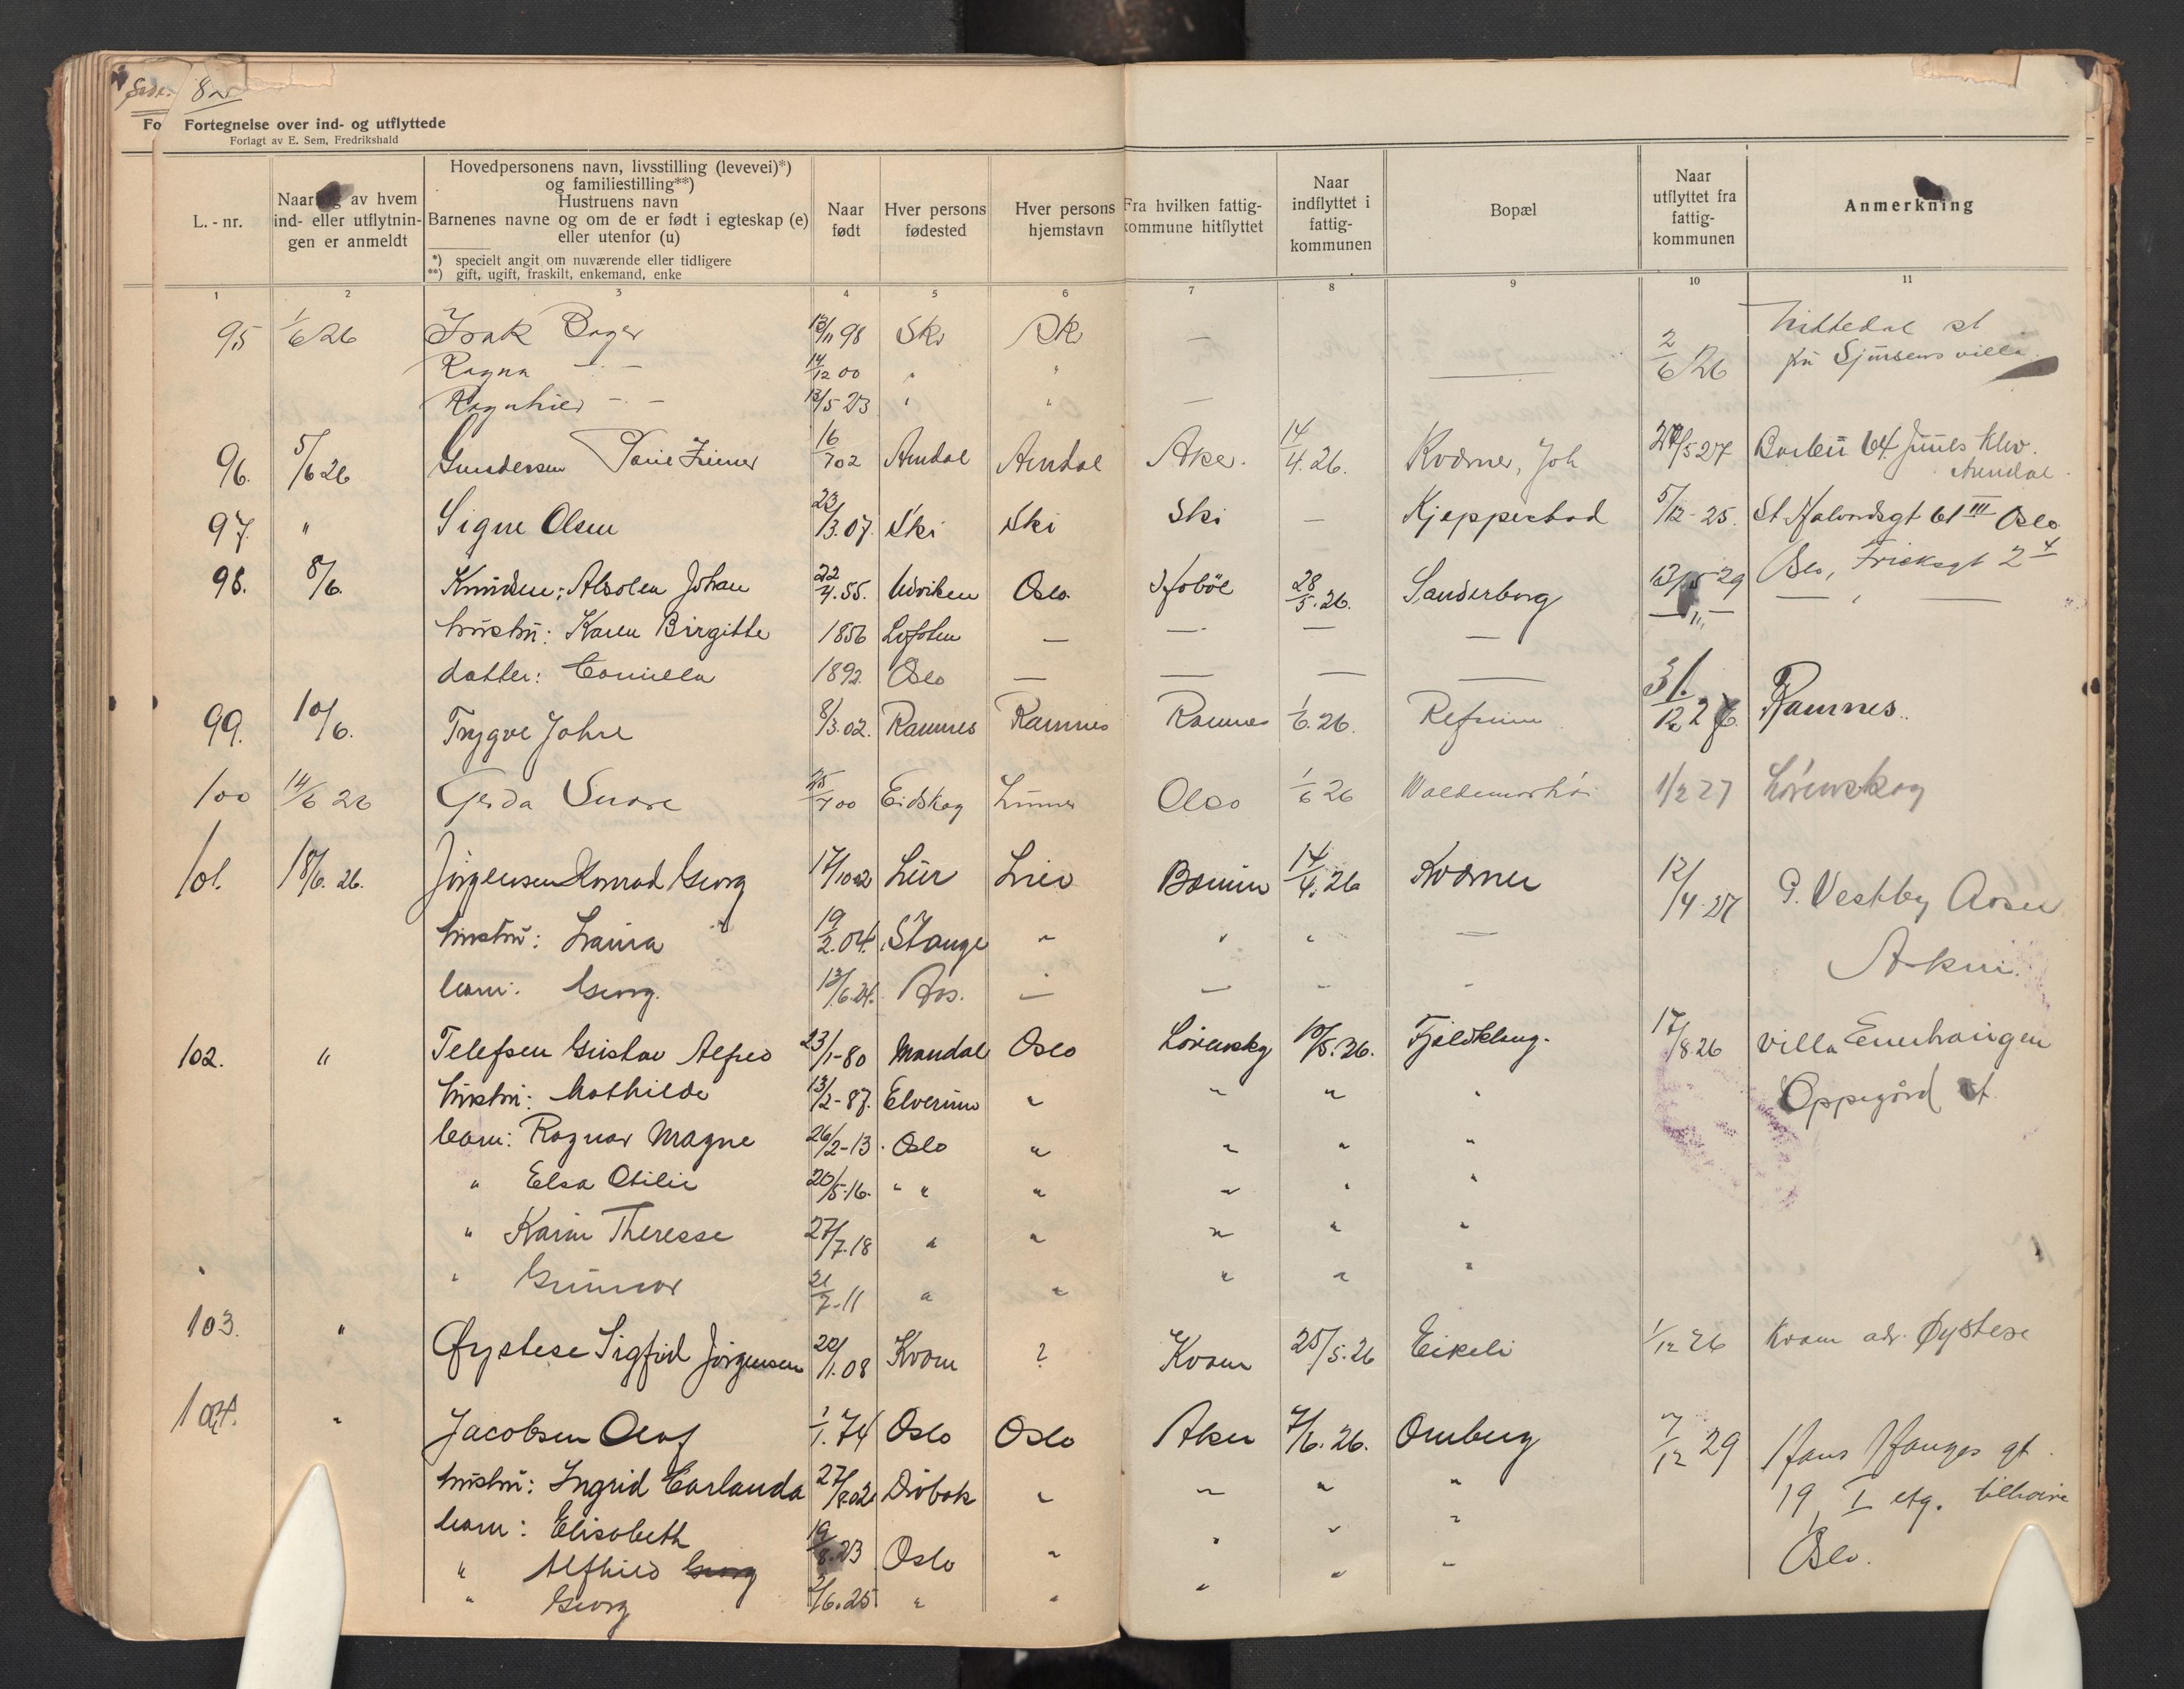 Side. 82
Fo Fortegnelse over ind- og utflyttede
Forlagt av E. Sem, Fredrikshald
L.-nr.
Naar og av hvem ind- eller utflytnin- gen er anmeldt
Hovedpersonens navn, livsstilling (levevei)*)
og familiestilling**)
Hustruens navn
Barnenes navne og om de er født i egteskap (e)
eller utenfor (u)
*) specielt angit om nuværende eller tidligere
**) gift, ugift, fraskilt, enkemand, enke
Naar født
Hver persons fødested
Hver persons hjemstavn
Fra hvilken fattig- kommune hitflyttet
Naar indflyttet i fattig- kommunen
Bopæl
Naar utflyttet fra fattig- kommunen
Anmerkning
1 2 3 4 5 6 7 8 9 10 11
95 1/6 26 Isak Bager 13/11 98 Ski Ski — 2/6 26 Nittedal st
Ragna — 14/12 00 " " fru Sjursens villa
Ragnhild — 13/5 23 " " —
96. 5/6 26 Gundersen 16/7 02 Arndal Arndal Aker. 14/4. 26. Kværner, Joh 24/5 27 Barbu 64 Juuls Klev.
Arendal.
97. " Signe Olsen 23/3. 07. Ski Ski Ski — Kjeppestad 5/12-25. St Halvardsgt 61 III Oslo
98. 8/6. Knudsen, Absolon Johan 22/4. 55. Udviken Oslo. Hobøl 28/5. 26. Sanderborg 13/5 29 Oslo, Fricksgt 2 4
hustru: Karen Birgitte 1856 Lofoten — — — — — " —
datter: Camilla 1892. Oslo — — — —
99. 10/6. Trygve Johre 8/3. 02. Ramnes Ramnes Ramnes 1/6. 26. Refsum 31/12 26. Ramnes.
100 14/6 26 Gerda Snare 25/7 00 Eidskog Oslo 1/6 26 Waldemarhøi 1/2 27 Lørenskog
101. 18/6. 26. Jørgensen Konrad Georg 17/10 02 Lier Lier Bærum 14/4. 26 Kværner 12/4. 27 P. Vestby Aasen
hustru: Laura 19/2. 04. Stange " " " — Aker.
barn: Georg. 13/6. 24. Aas. — — " "
102. " Telefsen Gustav Alfred 23/1-80 Mandal Oslo Lørenskog 10/5. 26. Fjeldklang. 17/8. 26 Villa Enerhaugen
hustru: Mathilde 13/2-87. Elverum " " " " Oppegård st.
barn: Ragnar Magne 26/2-13. Oslo " " " "
" Elsa Otilie 20/5-16. " " " " " "
" Karin Theresse 27/7. 18 " " " " "
" Gunnar 21/7-11 " " " " "
103. " Øystese Sigfrid Jørgensen 20/1. 08 Kvam ? Kvam 25/5. 26 Eikeli 1/12 26 Kvam adr. Øystese
104. " Jacobsen Olaf 1/1. 74 Oslo Oslo Aker 7/6. 26. Ormberg 7/12 29 Hans Hauges gt.
hustru: Ingrid Carlanda 27/8. 02 Drøbak " " " " 19, I etg. tilhøire
barn: Elisabeth 19/8. 23 Oslo " " " " Oslo.
" Alfhild Georg
" Georg 2/6. 25. " " " " "